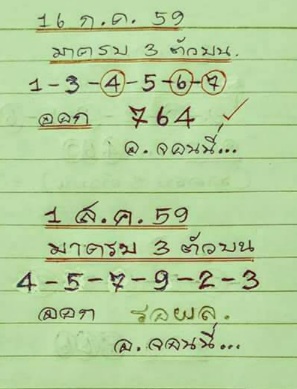 16 ก.ค. 59
มาครบ 3 ตัวบน.
1-3-4-5-6-7
ออก 764 ✓
อ.จอนนี่...
1 ส.ค. 59
มาครบ 3 ตัวบน
4-5-7-9-2-3
ออก รอผล.
อ.จอนนี่...